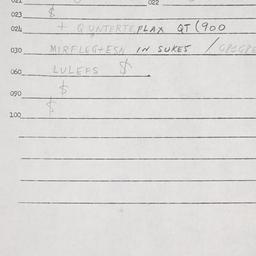 021 022
023 $
024 + QUNTERTEFLAX QT (900
030 MIRFLEG+ESN IN SUKES /
060 LULEFS $
090 $
$
100